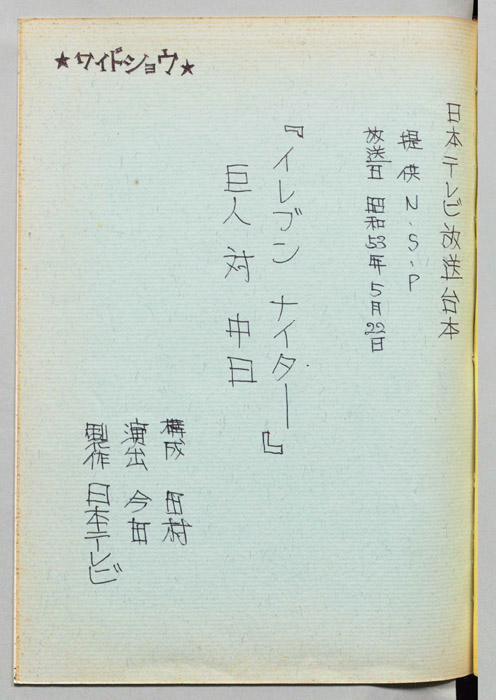 ★ワイドショウ★
日本テレビ放送台本
提供 N.S.P
放送日 昭和53年5月22日
『イレブン ナイター』
巨人 対 中日
構成 田村
演出 今田
製作 日本テレビ